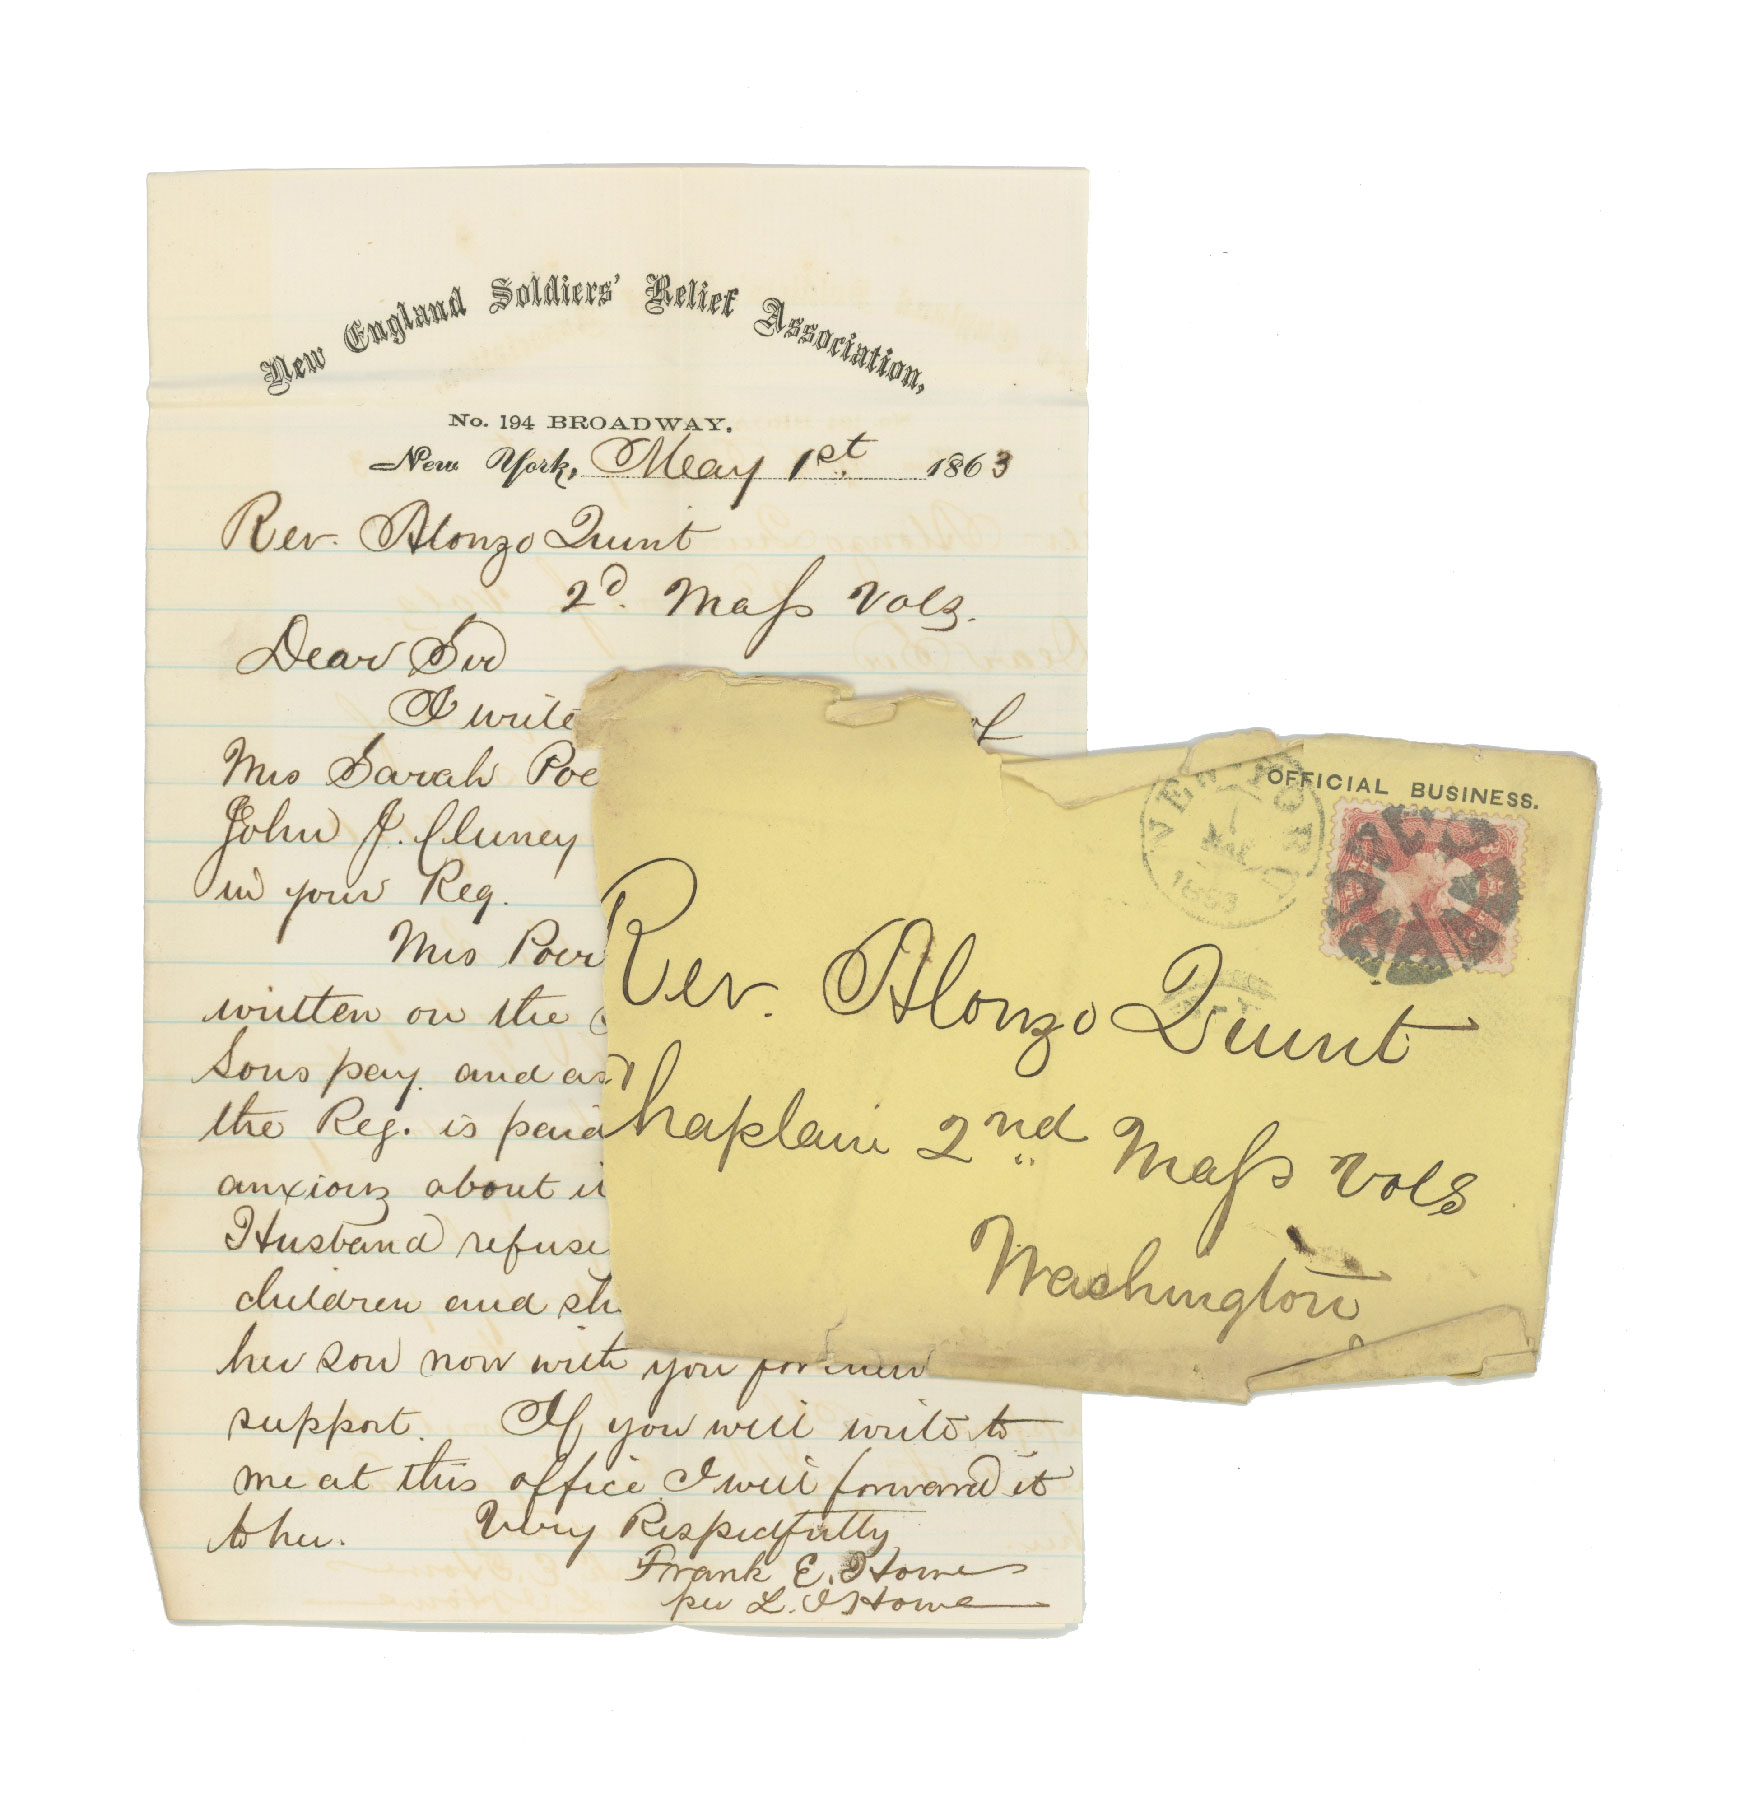 New England Soldiers' Relief Association,
No. 194 BROADWAY.
New York, May 1st. 1863
Rev. Alonzo Quint
2d. Mass Vols.
Dear Sir
I write of
Mrs Sarah
John J. Cluney
in your Reg.
Mrs
written on the
Sons pay. and as
the Reg. is paid
anxious about it
Husband refuse
children and sh
her son now with you for their
support. If you will write to
me at this office I will forward it
to her. Very Respectfully
Frank E. Howe
per L. I Howe
OFFICIAL BUSINESS.
NEW YORK
MAY
1
1863
Rev. Alonzo Quint
Chaplain 2nd Mass Vols
Washington